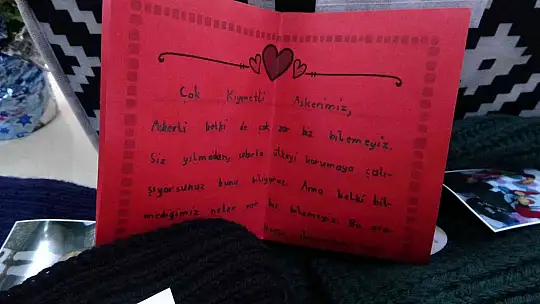 Çok Kıymetli Askerimiz,
Askerlik belki de çok zor biz bilemeyiz.
Siz yılmadan, sabırla ülkeyi korumaya çalı-
şıyorsunuz bunu biliyoruz. Ama belki bil-
mediğimiz neler var biz bilemeyiz. Bu